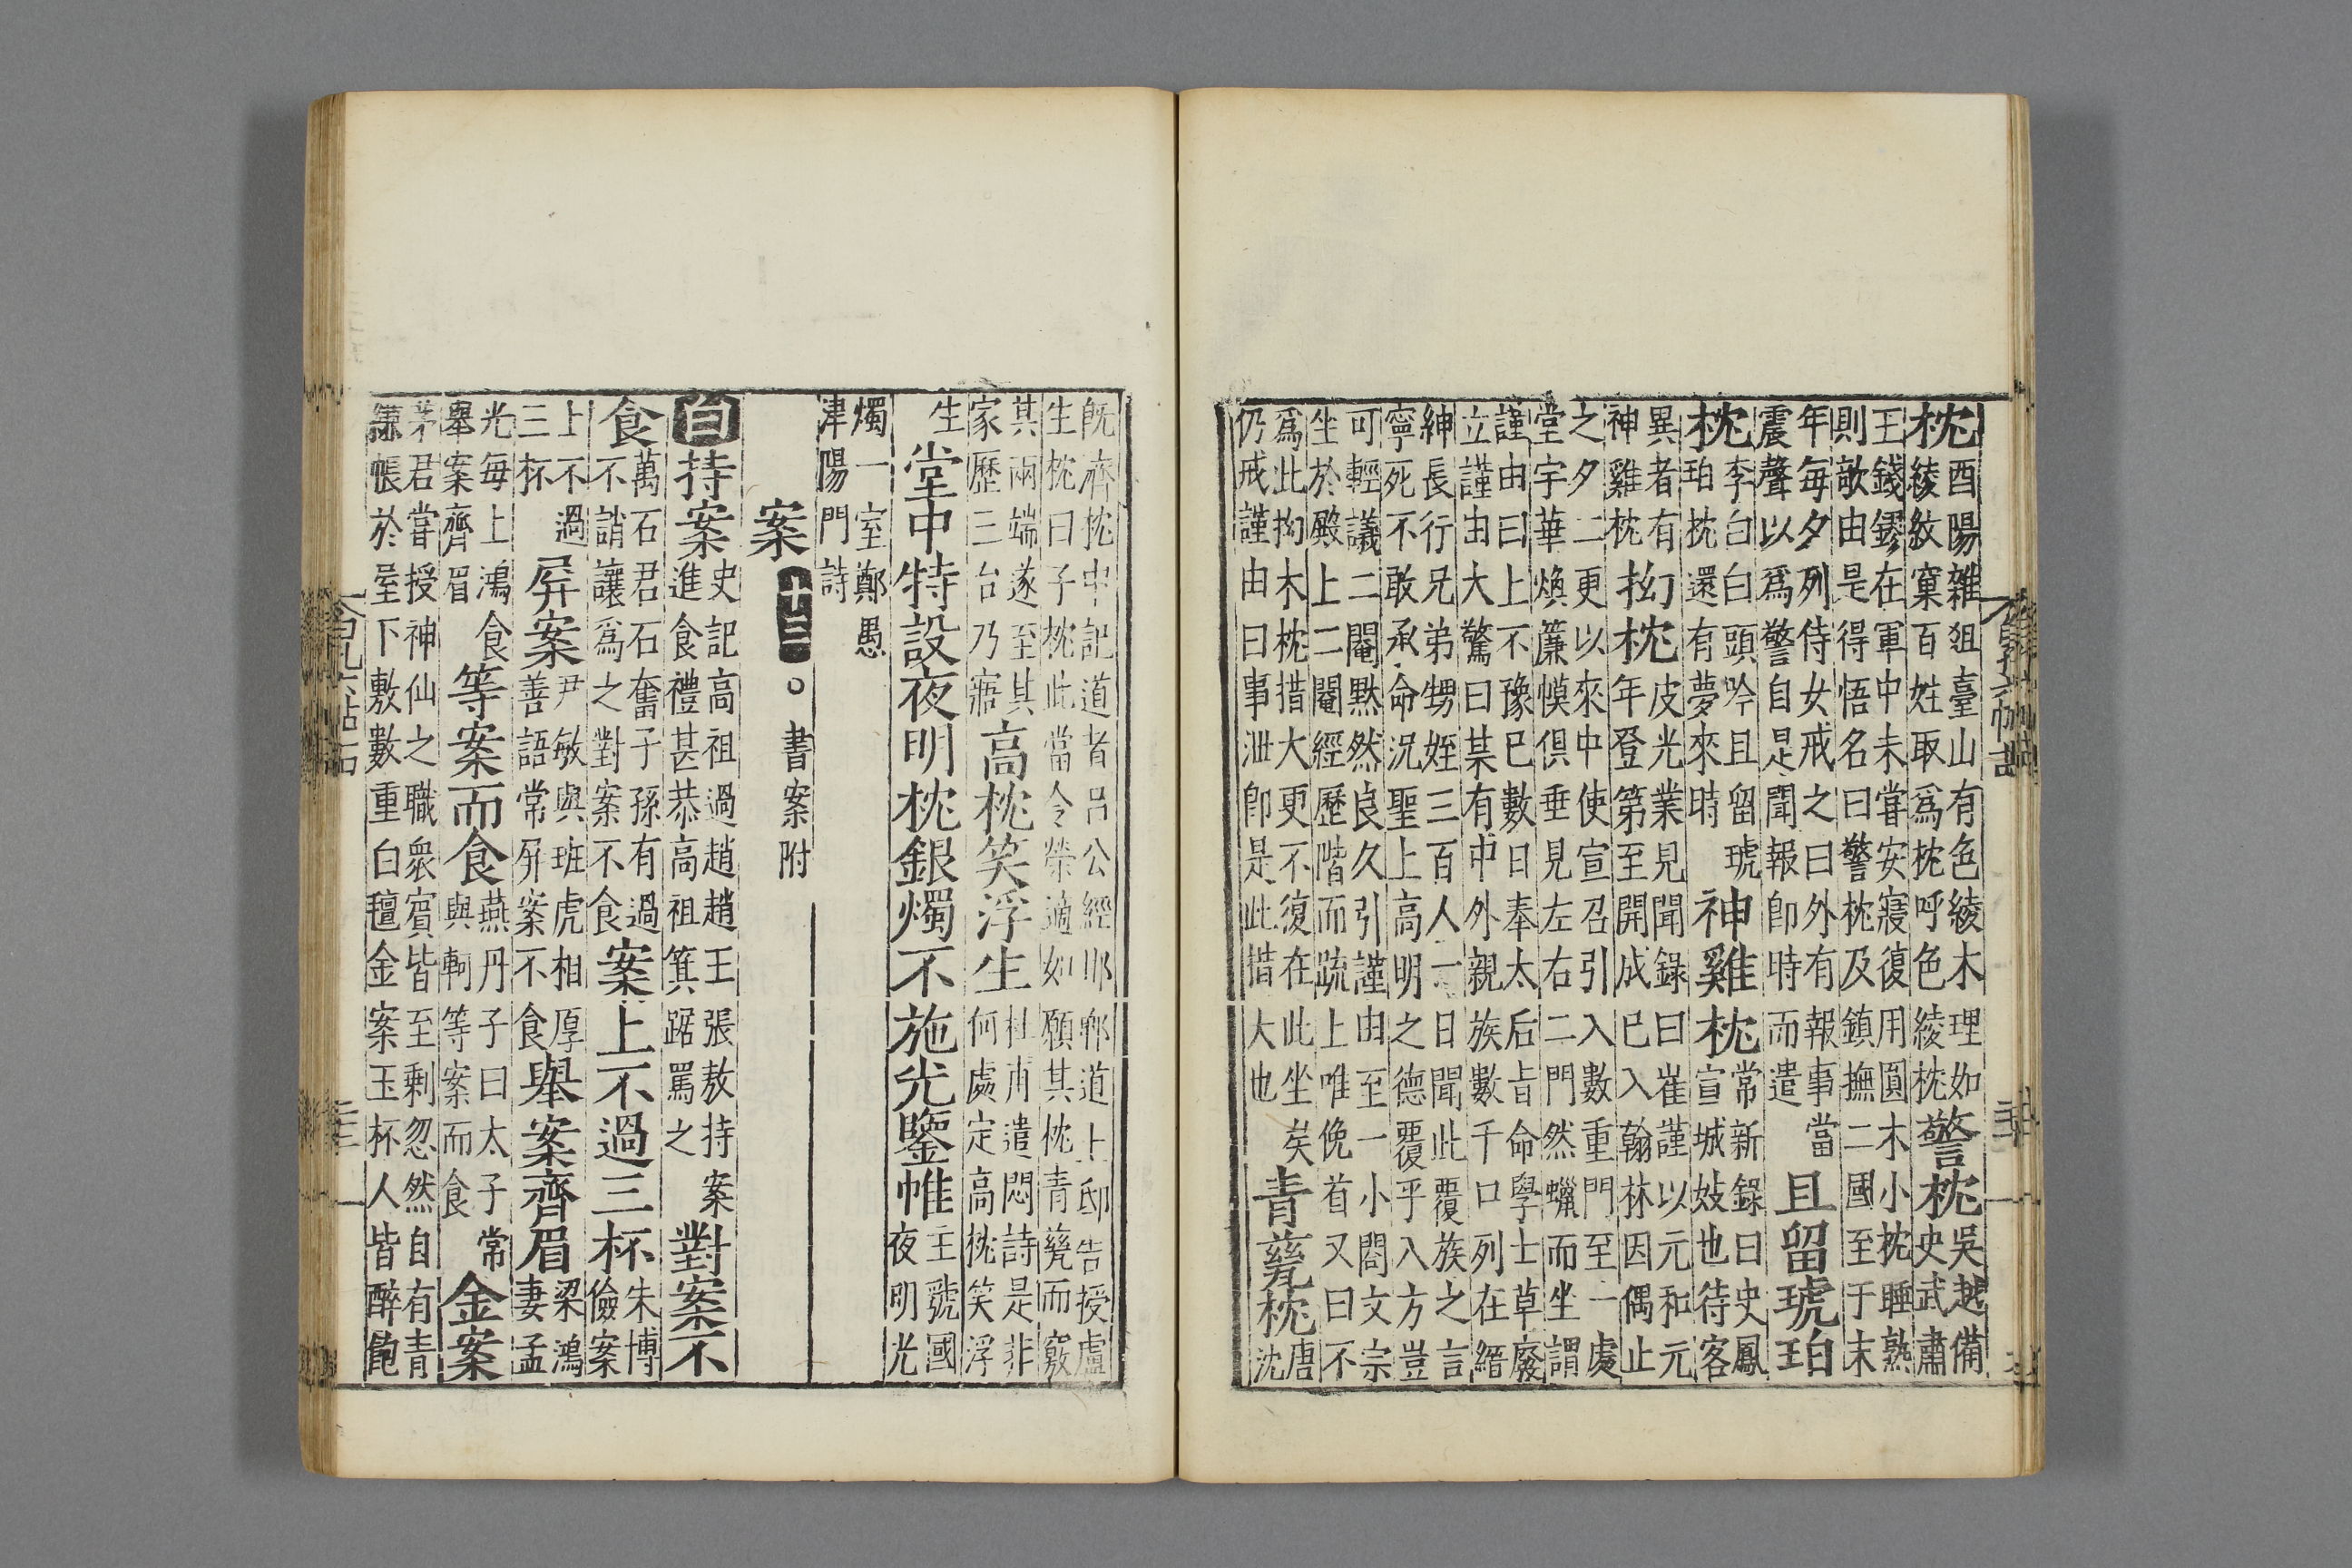 枕酉陽雜俎臺山有色綾木理如
綾紋窠百姓取爲枕呼色綾枕警枕吳越備
史武肅
王錢鏐在軍中未嘗安寢復用圓木小枕睡熟
則欹由是得悟名曰警枕及鎮撫二國至于末
年每夕列侍女戒之曰外有報事當
震聲以爲警自是聞報即時而遣且留琥珀
枕李白白頭吟且留琥
珀枕還有夢來時神雞枕常新錄曰史鳳
宣城妓也待客
異者有
神雞枕拗枕皮光業見聞錄曰崔謹以元和元
年登第至開成已入翰林因偶止
之夕二更以來中使宣召引入數重門至一處
堂宇華煥簾幙俱垂見左右二門然蠟而坐謂
謹由曰上不豫已數日奉太后旨命學士草廢
立謹由大驚曰某有中外親族數千口列在縉
紳長行兄弟甥姪三百人一日聞此覆族之言
寧死不敢承命況聖上高明之德覆乎入方豈
可輕議二閹默然良久引謹由至一小閤文宗
坐於殿上二閹經歷階而疏上唯俛首又曰不
爲此拗木枕措大更不復在此坐矣
仍戒謹由曰事泄即是此措大也青甆枕唐
沈
既濟枕中記道者呂公經邯鄲道上邸告授盧
生枕曰子枕此當令榮適如願其枕青甆而竅
其兩端遂至其
家歷三台乃寤高枕笑浮生杜甫遣悶詩是非
何處定高枕笑浮
生堂中特設夜明枕銀燭不施光鑒帷夜明光
王虢國
燭一室鄭愚
津陽門詩
案十三○書案附
白持案史記高祖過趙趙王張敖持案
進食禮甚恭高祖箕踞罵之對案不
食萬石君石奮子孫有過
不誚讓爲之對案不食案上不過三杯朱博
儉案
上不過
三杯屏案尹敏與班虎相厚
善語常屏案不食舉案齊眉梁鴻
妻孟
光每上鴻食
舉案齊眉等案而食燕丹子曰太子常
與軻等案而食金案
茅君嘗授神仙之職衆賓皆至剩忽然自有青
縑帳於屋下敷數重白氊金案玉杯人皆醉飽